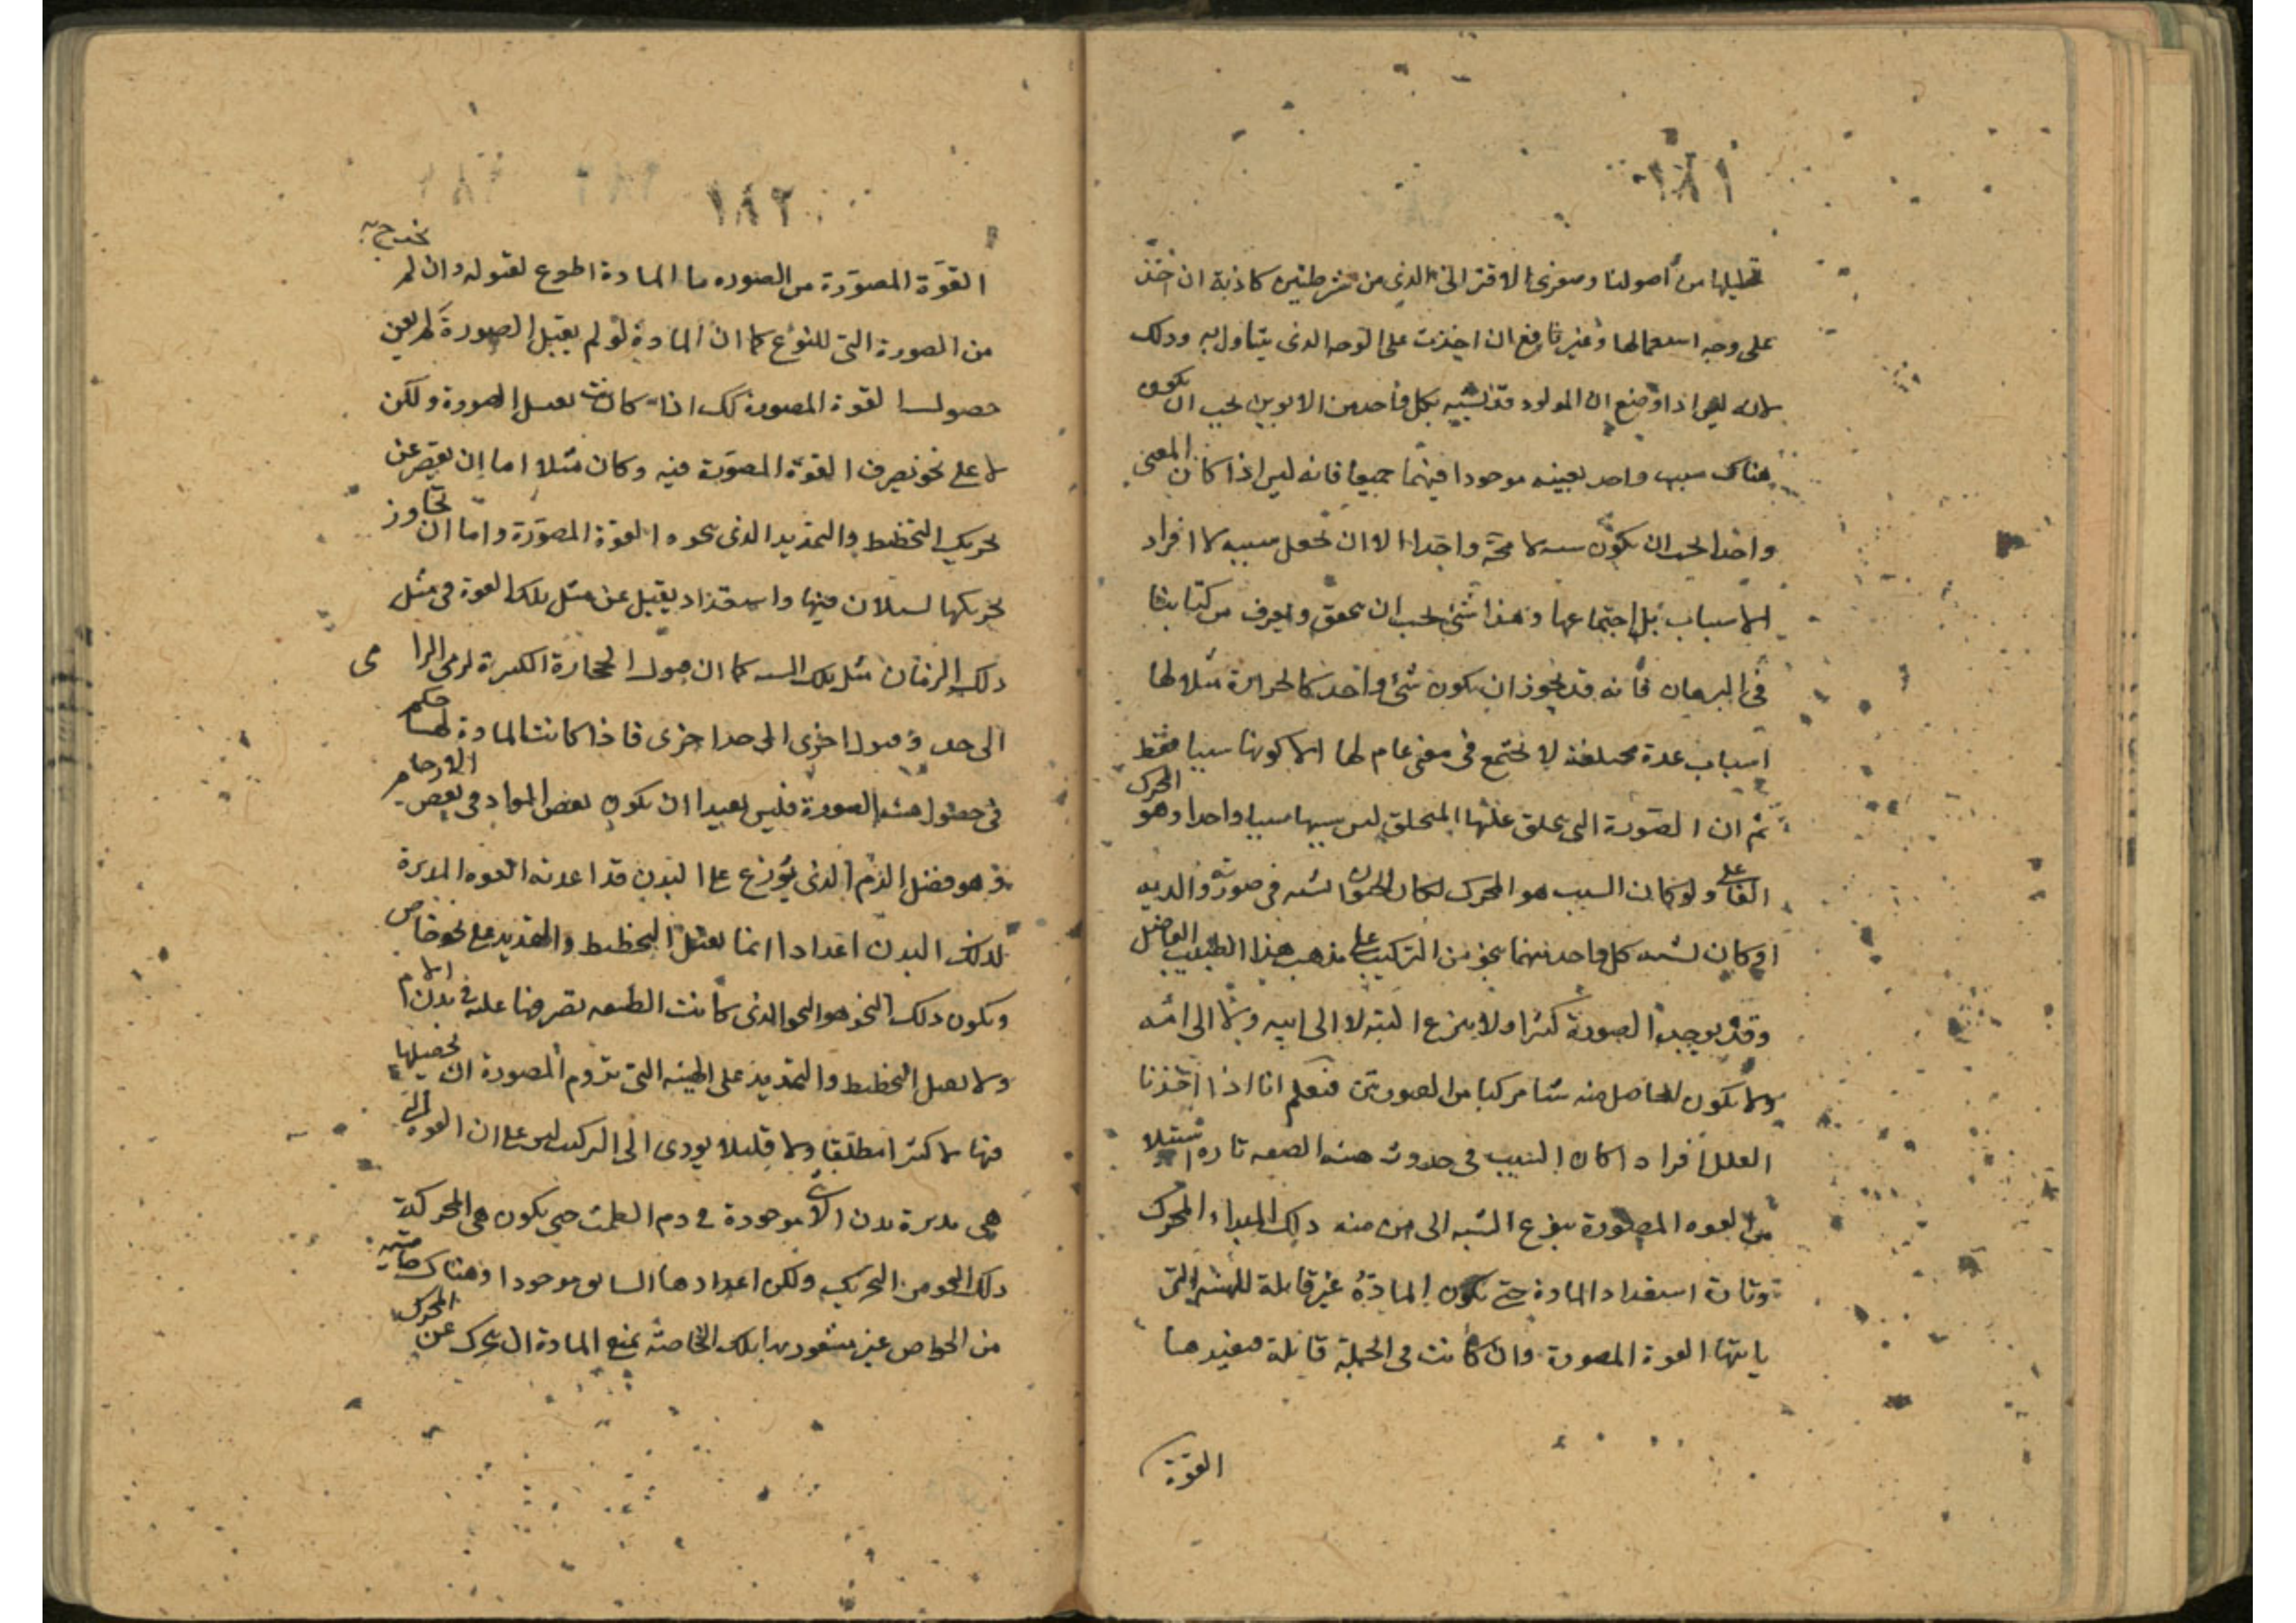 ١٨١
تحليلها من أصولنا وصغرى الاقترانى الذى من شرطيتين كاذبة ان اخذ
على وجه استعمالها وغير نافع ان اخذت على الوجه الذى يتناول به وذلك
لانه ليس اذا وضع ان المولود قد يشبه بكل واحد من الابوين يجب ان يكون
هناك سبب واحد بعينه موجودا فيهما جميعا فانه ليس اذا كان المعنى
واحدا يجب ان يكون سببه لا محة واحدا الا ان تجعل سببه لا افراد
الاسباب بل اجتماعها وهذا شئ يجب ان يحقق ويعرف من كتابنا
فى البرهان فانه قد يجوز ان يكون شئ واحد كالحرارة مثلا لها
اسباب عدة مختلفة لا تجتمع فى معنى عام لها الا كونها سببا فقط
ثم ان الصورة التى يخلق عليها المتخلق ليس سببها سببا واحدا وهو المحرك
الفاعلى ولو كان السبب هو المحرك لكان الحيوان يشبه فى صورته والديه
او كان يشبه كل واحد منهما بنحو من التركيب على مذهب هذا الطبيب الفاضل
وقد يوجد الصورة كثيرا ولا ينزع البتة لا الى ابيه ولا الى امه
ولا يكون الحاصل منه شيئا مركبا من الصورتين فنعلم انا اذا اخذنا
العلل افرادا كان السبب فى حدوث هذه الصيغة تارة
من القوة المصورة ينزع الشبه الى من منه ذلك المبداء المحرك
وتارة استعداد المادة حتى تكون المادة غير قابلة للهيئة التى
يأتيها القوة المصورة وان كانت فى الجملة قابلة فيفيدها
القوة
١٨٢
القوة المصورة من الصورة ما المادة اطوع لقبوله وان لم تخرج به
من الصورة التى للنوع كما ان المادة لو لم يقبل الصورة لم يعن
حصول القوة المصورة كك اذا كانت يقبل الصورة ولكن
لا على نحو تصرف القوة المصورة فيه وكان مثلا اما ان يقصر عن
تحريك التخطيط والتمديد الذى نحوه القوة المصورة واما ان تجاوز
تحريكها لسيلان فيها واستعداد يقبل عن مثل تلك القوة فى مثل
ذلك الزمان مثل تلك كما ان قبول الحجارة الكبيرة لرمى الرامى
الى حد وقبول اخرى الى حد اخرى فاذا كانت المادة لها حكم
فى حصول هذه الصورة فليس بعيدا ان يكون بعض المواد فى بعض الارحام
وهو فضل الدم الذى يوزع على البدن قد اعدته القوة المدبرة
لذلك البدن اعدادا انما يقبل التخطيط والتمديد على نحو خاص
ويكون ذلك النحو هو النحو الذى كانت الطبيعة تصرفها عليه فى بدن الام
ولا يقبل التخطيط والتمديد على الهيئة التى تروم المصورة ان تحصيلها
فيها لا كثيرا مطلقا ولا قليلا يودى الى التركيب ليس على ان القوة التى
هى مدبرة بدن الانثى موجودة فى دم الطمث حتى يكون هى المحركة
ذلك النحو من التحريك ولكن اعدادها السابق موجودا وهناك خاصية
من الخواص غير مشعور بها تلك الخاصة تمنع المادة ان يتحرك عن المحرك